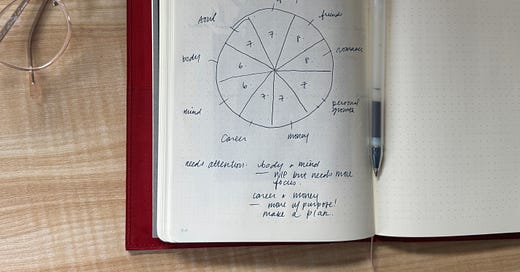 soul
friends
7
7
7
8
body
romance
6
8
6
7
7
7
mind
personal
growth
career
money
needs attention: body + mind
— WIP but needs more
focus.
career + money
— more w/ purpose!
make a plan.